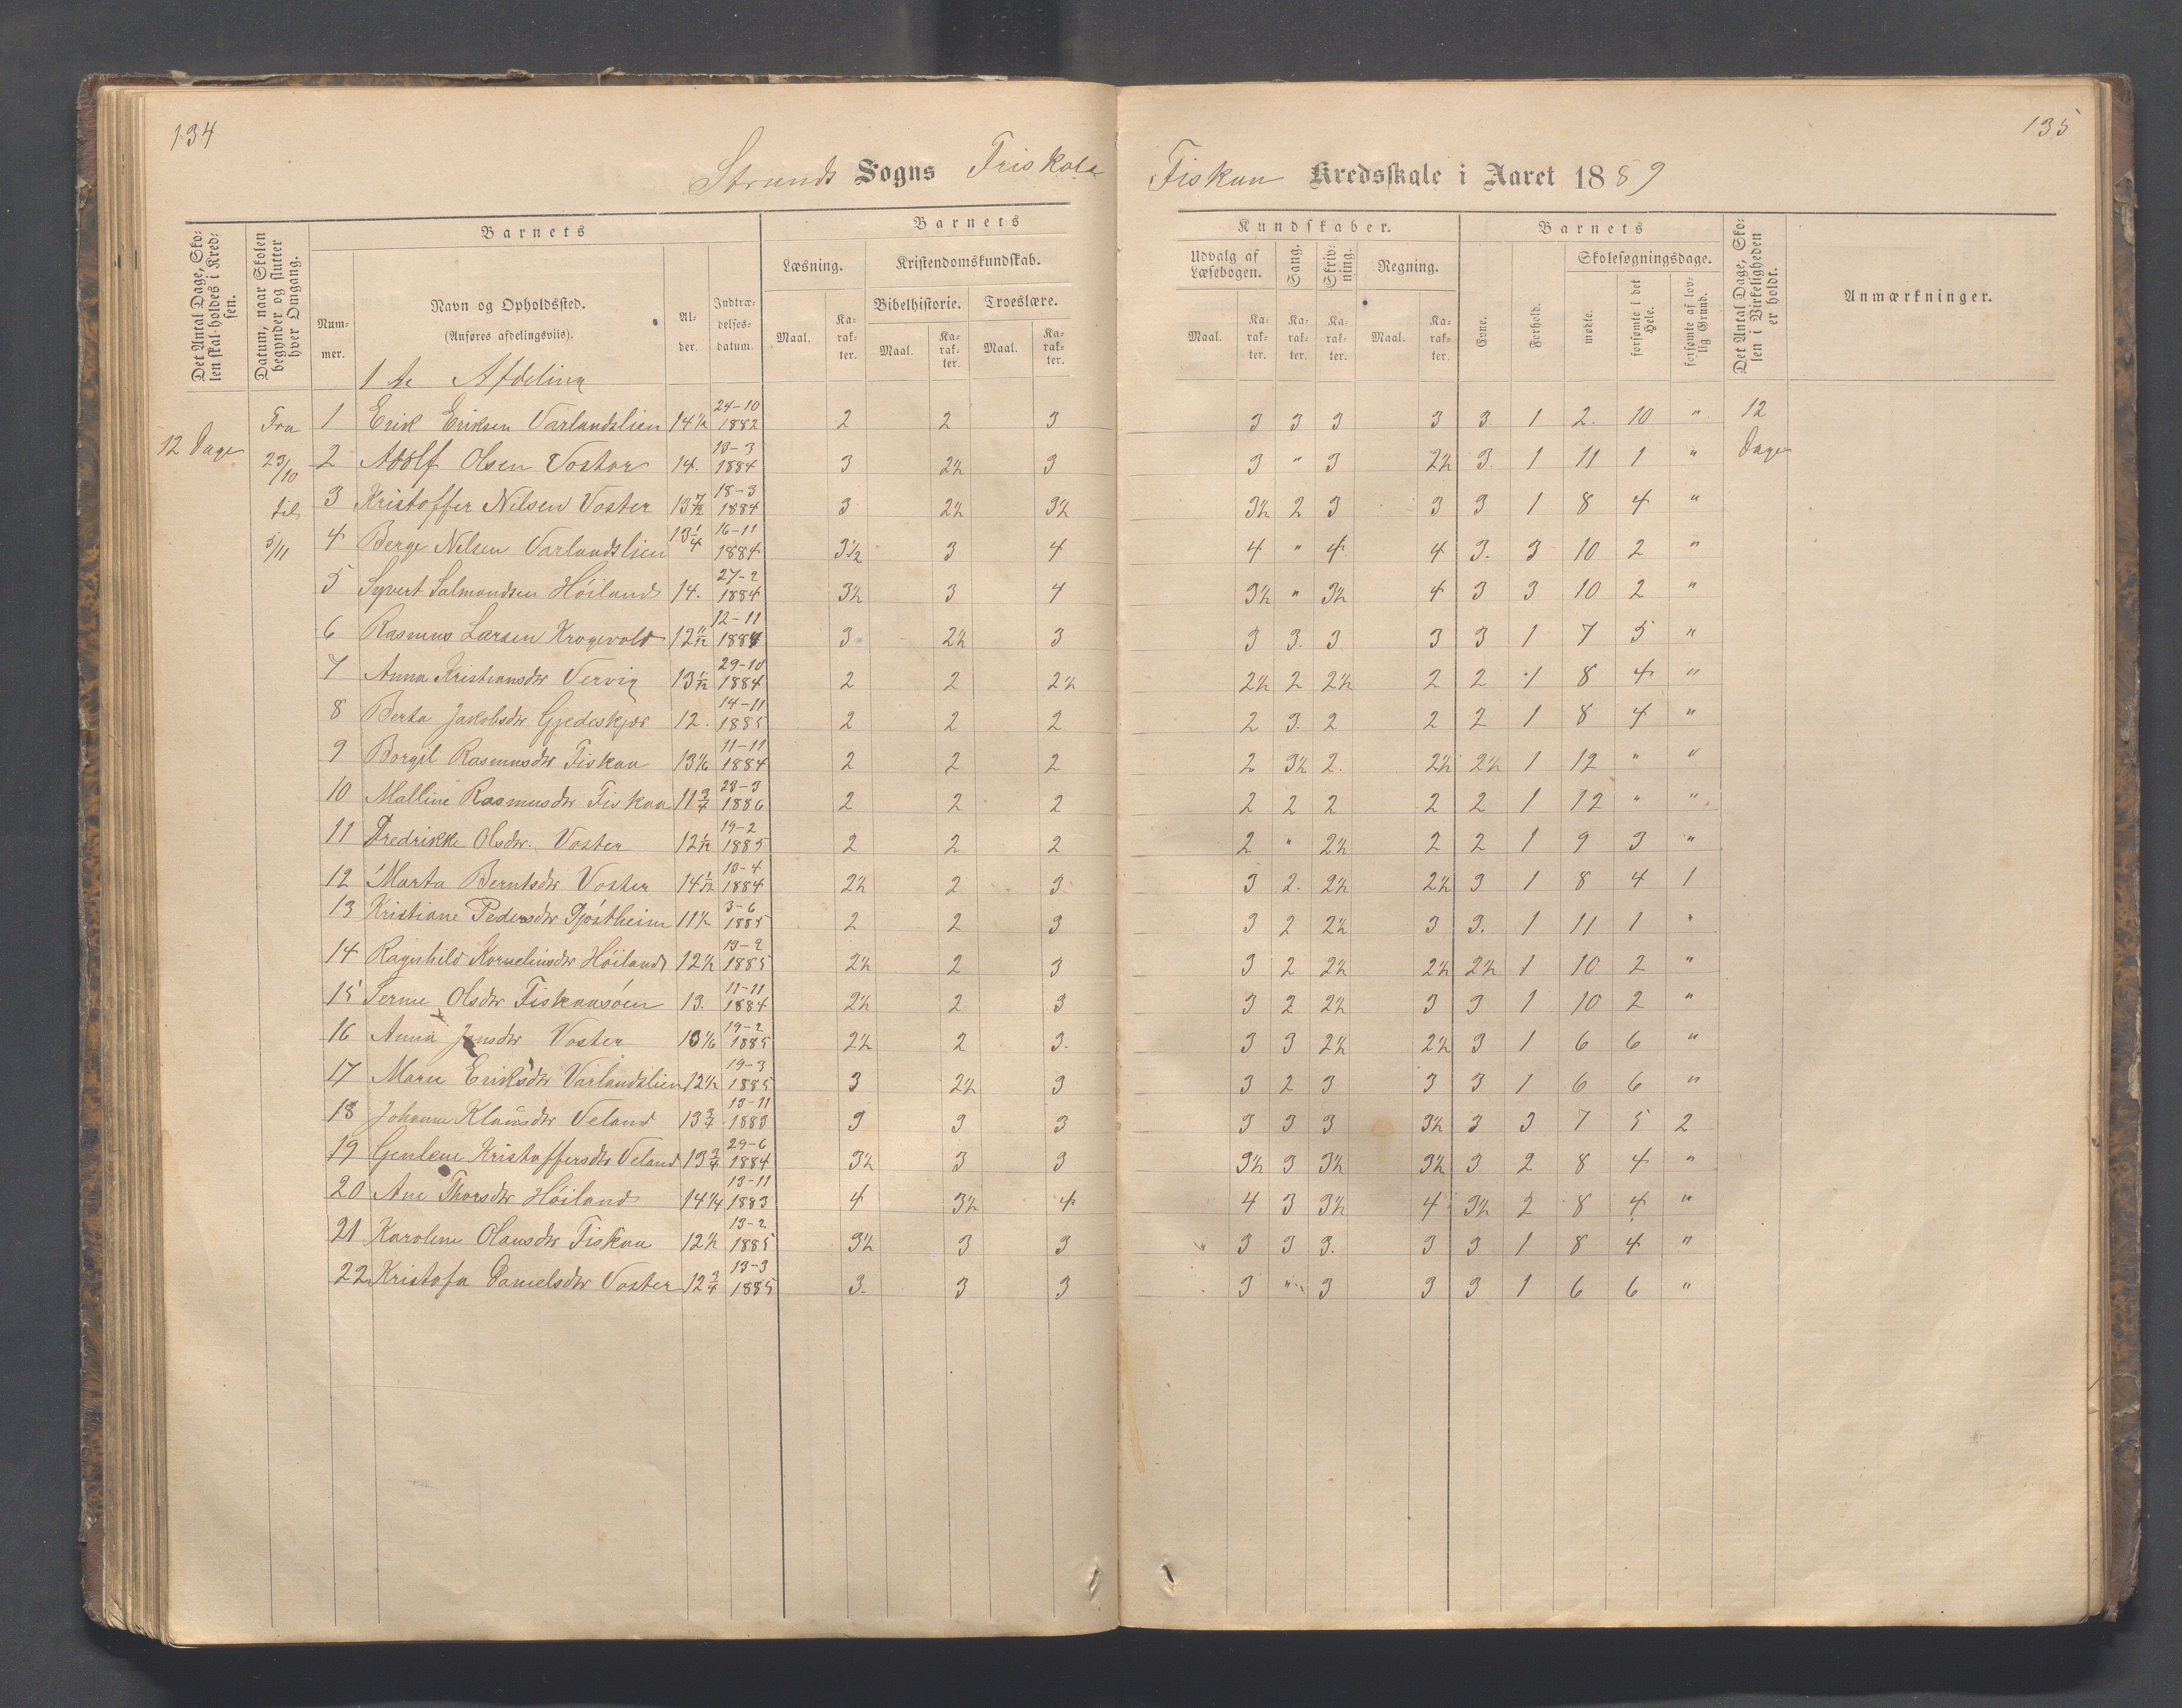 134
135
Strands Sogns Friskola
Fiskaa Kredsskole i Aaret 1889
Det Antal Dage, Skolen skal holdes i Kredsen.
Datum, naar Skolen begynder og slutter hver Omgang.
Barnets
Nummer.
Navn og Opholdssted.
(Anføres afdelingsviis).
Alder.
Indtrædelsesdatum.
Barnets
Læsning.
Kristendomskundskab.
Bibelhistorie.
Troeslære.
Maal. Karakter. Maal. Karakter. Maal. Karakter.
Kundskaber.
Udvalg af Læsebogen.
Sang.
Skrivning.
Regning.
Maal. Karakter. Karakter. Karakter. Maal. Karakter.
Barnets
Evne.
Forhold.
Skolesøgningsdage.
mødte.
forsømte i det Hele.
forsømte af lovlig Grund.
Det Antal Dage, Skolen i Virkeligheden er holdt.
Anmærkninger.
1 te Afdeling
12 Dage
Fra 23/10 til 5/11
12 Dage
1 Erik Eriksen Varlandslien 14½ 24-10 1882 2 2 3 3 3 3 3 3 1 2. 10 "
2 Adolf Olsen Voster 14. 13-3 1884 3 2½ 3 3 " 3 2½ 3. 1 11 1 "
3 Kristoffer Nilsen Voster 13 7/12 18-3 1884 3 2½ 3½ 3½ 2 3 3 3 1 8 4 "
4 Berge Nilsen Varlandslien 13 1/4 16-11 1884 3½ 3 4 4 " 4 4 3. 3 10 2 "
5 Syvert Salmondsen Höiland 14. 27-2 1884 3½ 3 4 3½ " 3½ 4 3 3 10 2 "
6 Rasmus Larsen Krogevold 12 11/12 12-11 1884 3 2½ 3 3 3. 3 3 3 1 7 5 "
7 Anna Kristiansdtr Vervig 13 1/12 29-10 1884 2 2 2½ 2½ 2 2½ 2 2 1 8 4 "
8 Berta Jakobsdtr Gjedeskjær 12. 14-11 1885 2 2 2 2 3. 2 2 2 1 8 4 "
9 Borgil Rasmusdtr Fiskaa 13 1/6 11-11 1884 2 2 2 2 3½ 2. 2½ 2½ 1 12 " "
10 Malline Rasmusdtr Fiskaa 11 3/4 28-3 1886 2 2 2 2 2 2 2 2 1 12 " "
11 Fredrikke Olsdtr. Voster 12 1/12 19-2 1885 2 2 2 2 " 2½ 2 2 1 9 3 "
12 Marta Berntsdtr Voster 14 1/12 10-4 1884 2½ 2 3 3 2. 2½ 2½ 3 1 8 4 1
13 Kristiane Pedersdtr Tjöstheim 11½ 3-6 1885 2 2 3 3 2 2½ 3 3. 1 11 1 "
14 Ragnhild Korneliusdtr Höiland 12½ 13-2 1885 2½ 2 3 3 2 2½ 2½ 2½ 1 10 2 "
15 Serine Olsdtr Fiskaasöen 13. 11-11 1884 2½ 2 3 3 2 2½ 3 3 1 10 2 "
16 Anna Jensdtr Voster 13 1/6 19-2 1885 2½ 2 3. 3 3 2½ 2½ 3 1 6 6 "
17 Maria Eriksdtr Varlandslien 12½ 19-3 1885 3 2½ 3 3 2 3 3 3 1 6 6 "
18 Johanne Klausdtr Veland 13 3/4 13-11 1883 3 3 3 3 3 3 3½ 3 3 7 5 2
19 Gunlene Kristoffersdtr Veland 13 3/4 29-6 1884 3½ 3 3 3½ 3 3½ 3½ 3 2 8 4 "
20 Ane Thorsdtr Höiland 14 1/4 13-11 1883 4 3½ 4 4 3 3½ 4 3½ 2 8 4 "
21 Karoline Olausdtr Fiskaa 12½ 13-2 1885 3½ 3 3 3 3 3. 3 3 1 8 4 "
22 Kristofa Danielsdtr Voster 12 3/4 13-3 1885 3. 3 3 3 " 3 3 3 1 6 6 "